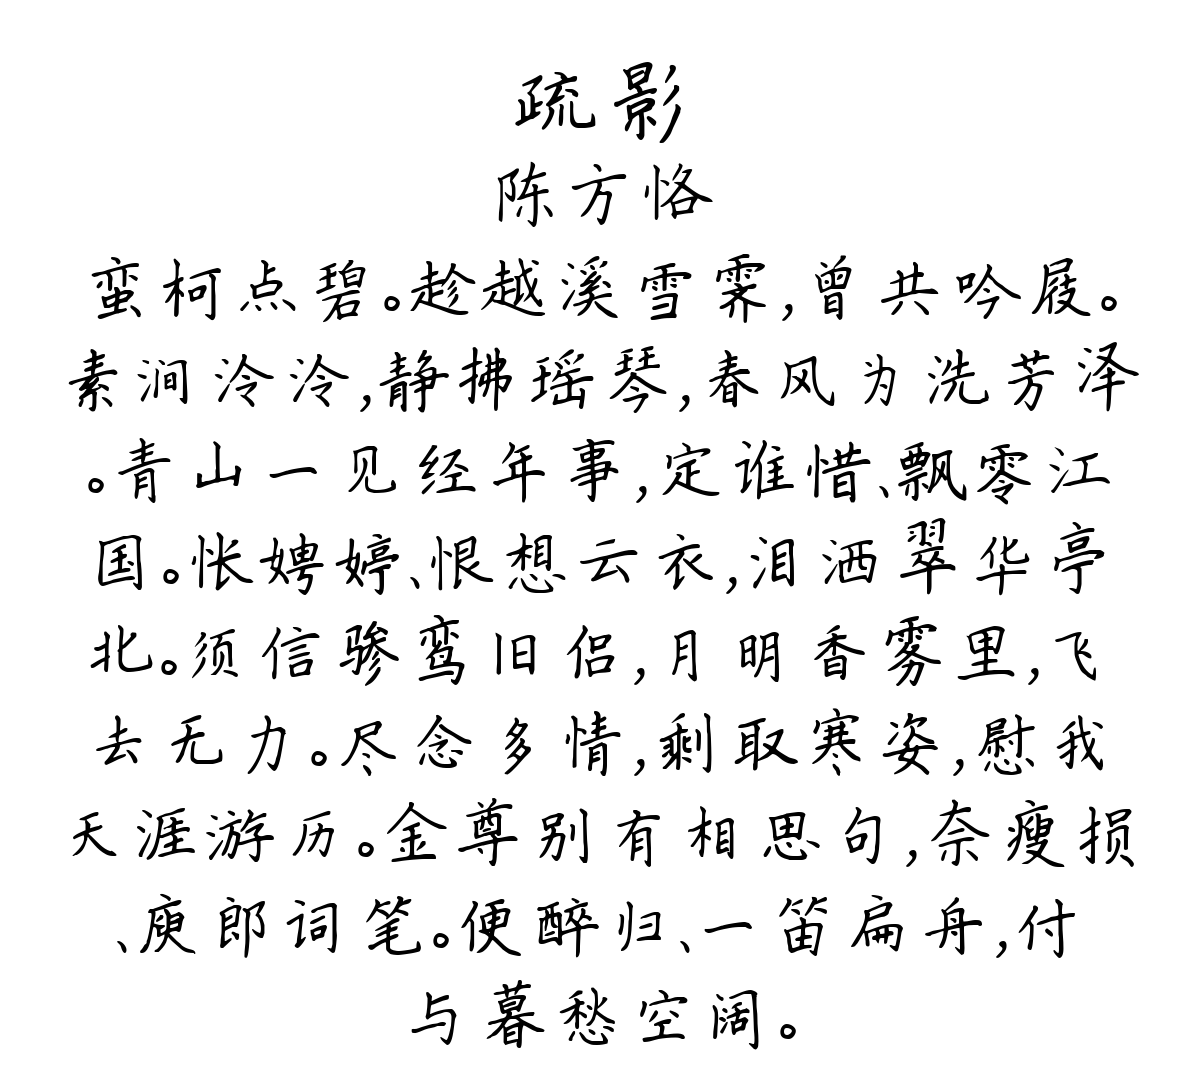 疏影
陈方恪
蛮柯点碧。趁越溪雪霁,曾共吟屐。
素涧泠泠,静拂瑶琴,春风为洗芳泽
。青山一见经年事,定谁惜、飘零江
国。怅娉婷、恨想云衣,泪洒翠华亭
北。须信骖鸾旧侣,月明香雾里,飞
去无力。尽念多情,剩取寒姿,慰我
天涯游历。金尊别有相思句,奈瘦损
、庾郎词笔。便醉归、一笛扁舟,付
与暮愁空阔。